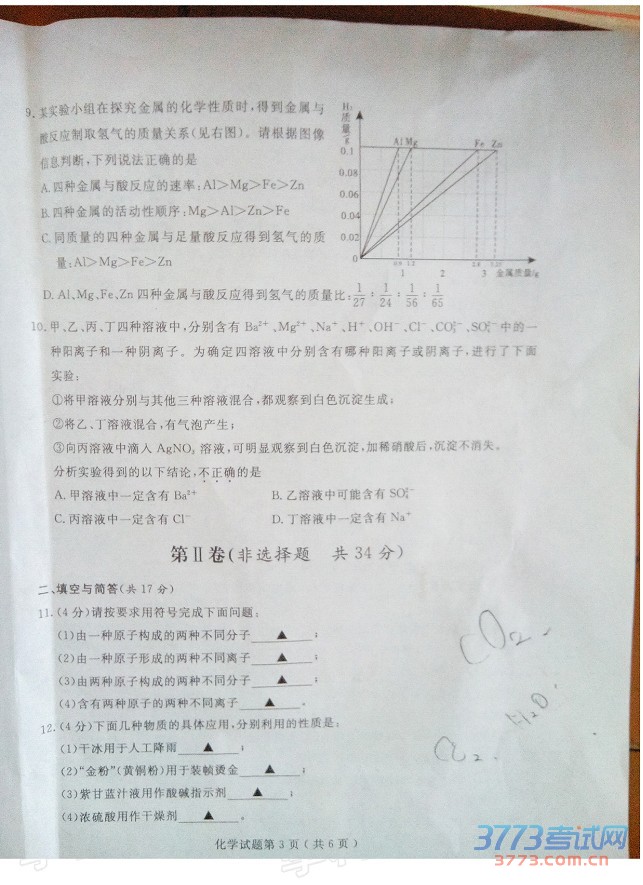 9. 某实验小组在探究金属的化学性质时,得到金属与
酸反应制取氢气的质量关系(见右图)。请根据图像
信息判断,下列说法正确的是
A.四种金属与酸反应的速率:Al>Mg>Fe>Zn
B.四种金属的活动性顺序:Mg>Al>Zn>Fe
C.同质量的四种金属与足量酸反应得到氢气的质
量:Al>Mg>Fe>Zn
H₂质量/g
Al Mg Fe Zn
0.1
0.08
0.06
0.04
0.02
0
0.9 1.2 2.8 3.25
1 2 3 金属质量/g
D. Al、Mg、Fe、Zn 四种金属与酸反应得到氢气的质量比:1/27:1/24:1/56:1/65
10. 甲、乙、丙、丁四种溶液中,分别含有 Ba²⁺、Mg²⁺、Na⁺、H⁺、OH⁻、Cl⁻、CO₃²⁻、SO₄²⁻ 中的一
种阳离子和一种阴离子。为确定四溶液中分别含有哪种阳离子或阴离子,进行了下面
实验:
①将甲溶液分别与其他三种溶液混合,都观察到白色沉淀生成;
②将乙、丁溶液混合,有气泡产生;
③向丙溶液中滴入 AgNO₃ 溶液,可明显观察到白色沉淀,加稀硝酸后,沉淀不消失。
分析实验得到的以下结论,不正确的是
A. 甲溶液中一定含有 Ba²⁺ B. 乙溶液中可能含有 SO₄²⁻
C. 丙溶液中一定含有 Cl⁻ D. 丁溶液中一定含有 Na⁺
第Ⅱ卷(非选择题 共 34 分)
二、填空与简答(共 17 分)
11. (4 分)请按要求用符号完成下面问题:
(1)由一种原子构成的两种不同分子 ▲ ;
(2)由一种原子形成的两种不同离子 ▲ ;
(3)由两种原子构成的两种不同分子 ▲ ;
(4)含有两种原子的两种不同离子 ▲ 。
CO₂
H₂O
12. (4 分)下面几种物质的具体应用,分别利用的性质是:
(1)干冰用于人工降雨 ▲ ;
(2)“金粉”(黄铜粉)用于装帧烫金 ▲ ;
(3)紫甘蓝汁液用作酸碱指示剂 ▲ ;
(4)浓硫酸用作干燥剂 ▲ 。
化学试题第 3 页(共 6 页)
3773考试网
3773.com.cn